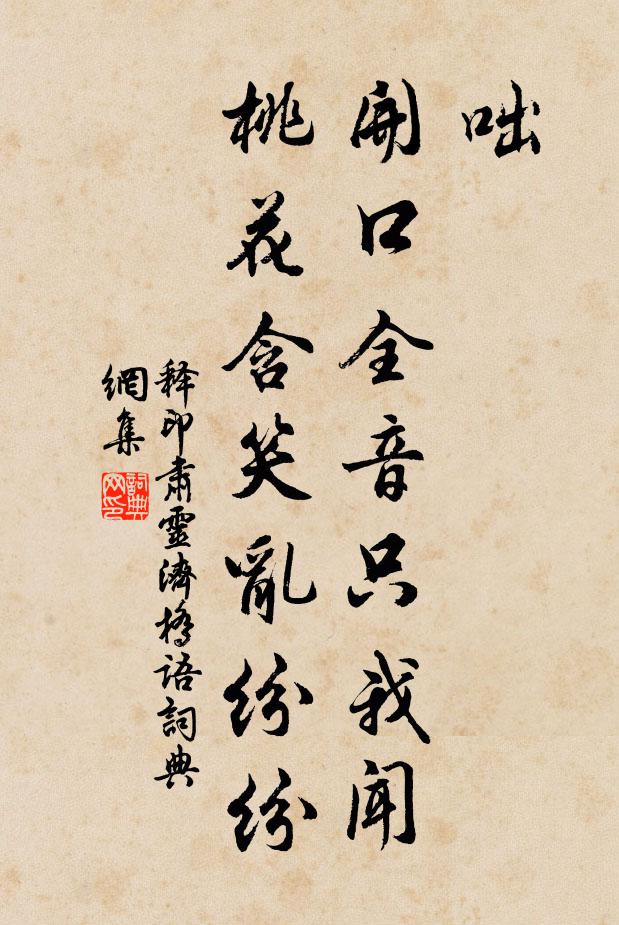 咄
開口全音只我聞
桃花含笑亂紛紛
釋印肅靈濟橋語詞典
網集
詞典
网印